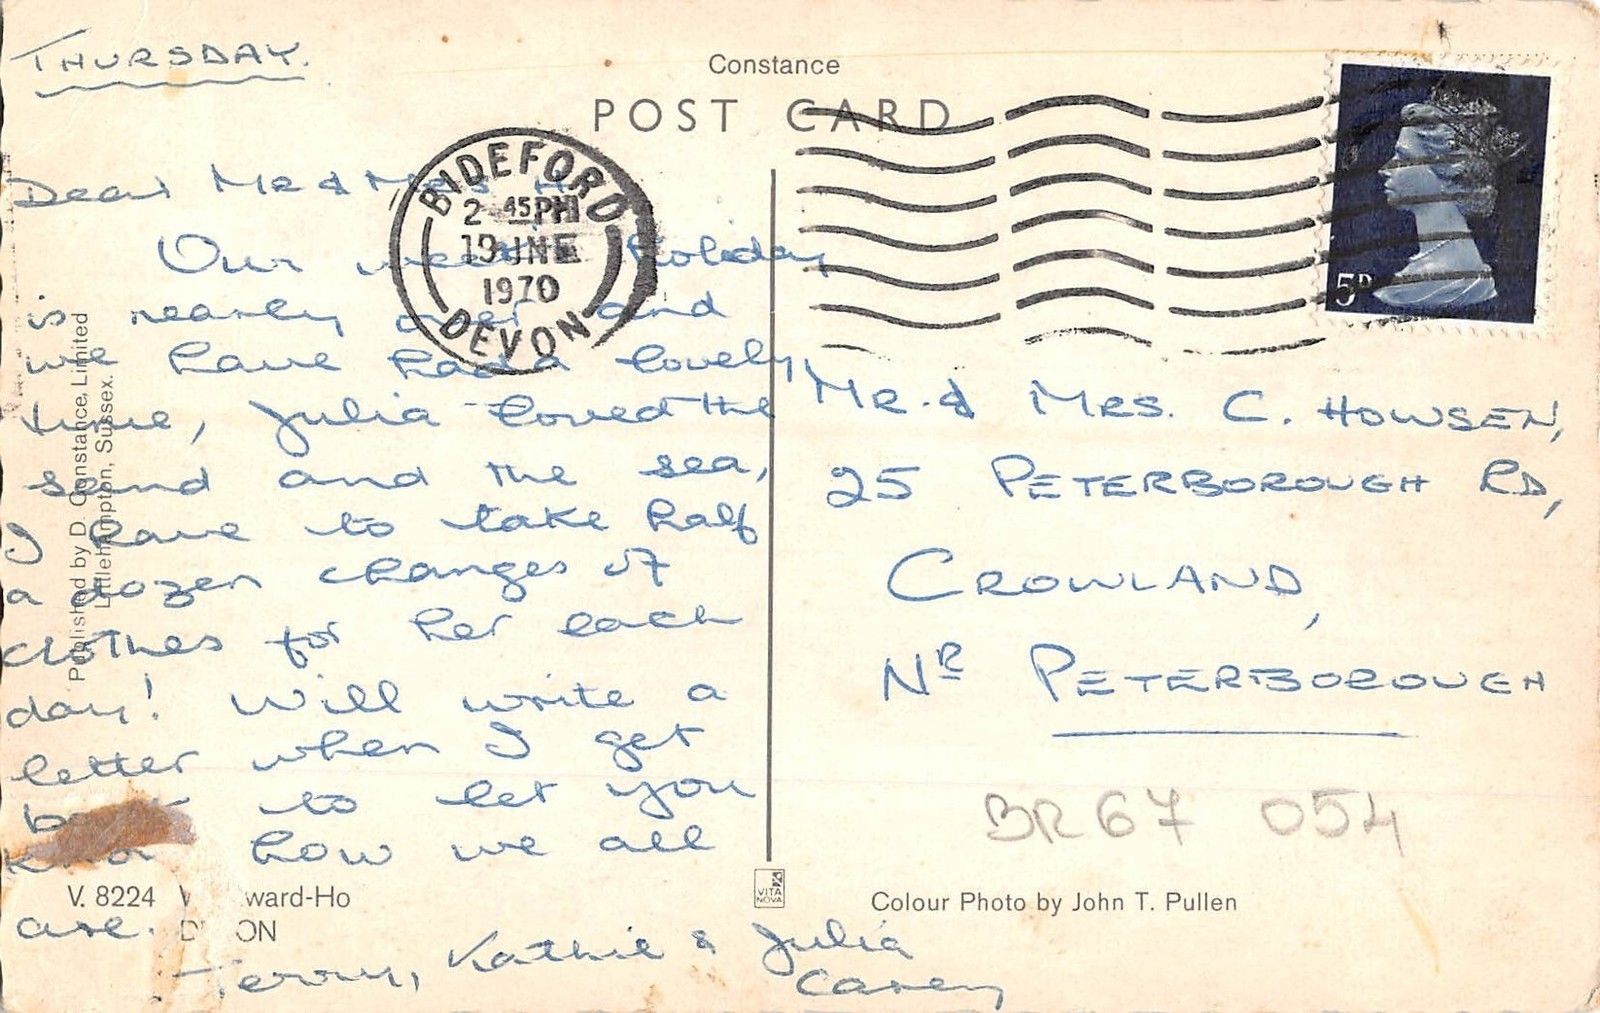 THURSDAY.
Constance
POST CARD
BIDEFORD
2 45 PM
19 JNE
1970
DEVON
5D
Dear Mr & Mrs H
Our week holiday
is nearly over and
we have had a lovely
time, Julia loved the
sand and the sea,
I have to take half
a dozen changes of
clothes for her each
day! Will write a
letter when I get
to let you
how we all
are.
Terry, Kathie & Julia
Carey
MR. & MRS. C. HOWSEN,
25 PETERBOROUGH RD,
CROWLAND,
NR PETERBOROUGH
BR67 054
Published by D. Constance, Limited
Littlehampton, Sussex.
V. 8224 W ward-Ho
D ON
VITA
NOVA
Colour Photo by John T. Pullen